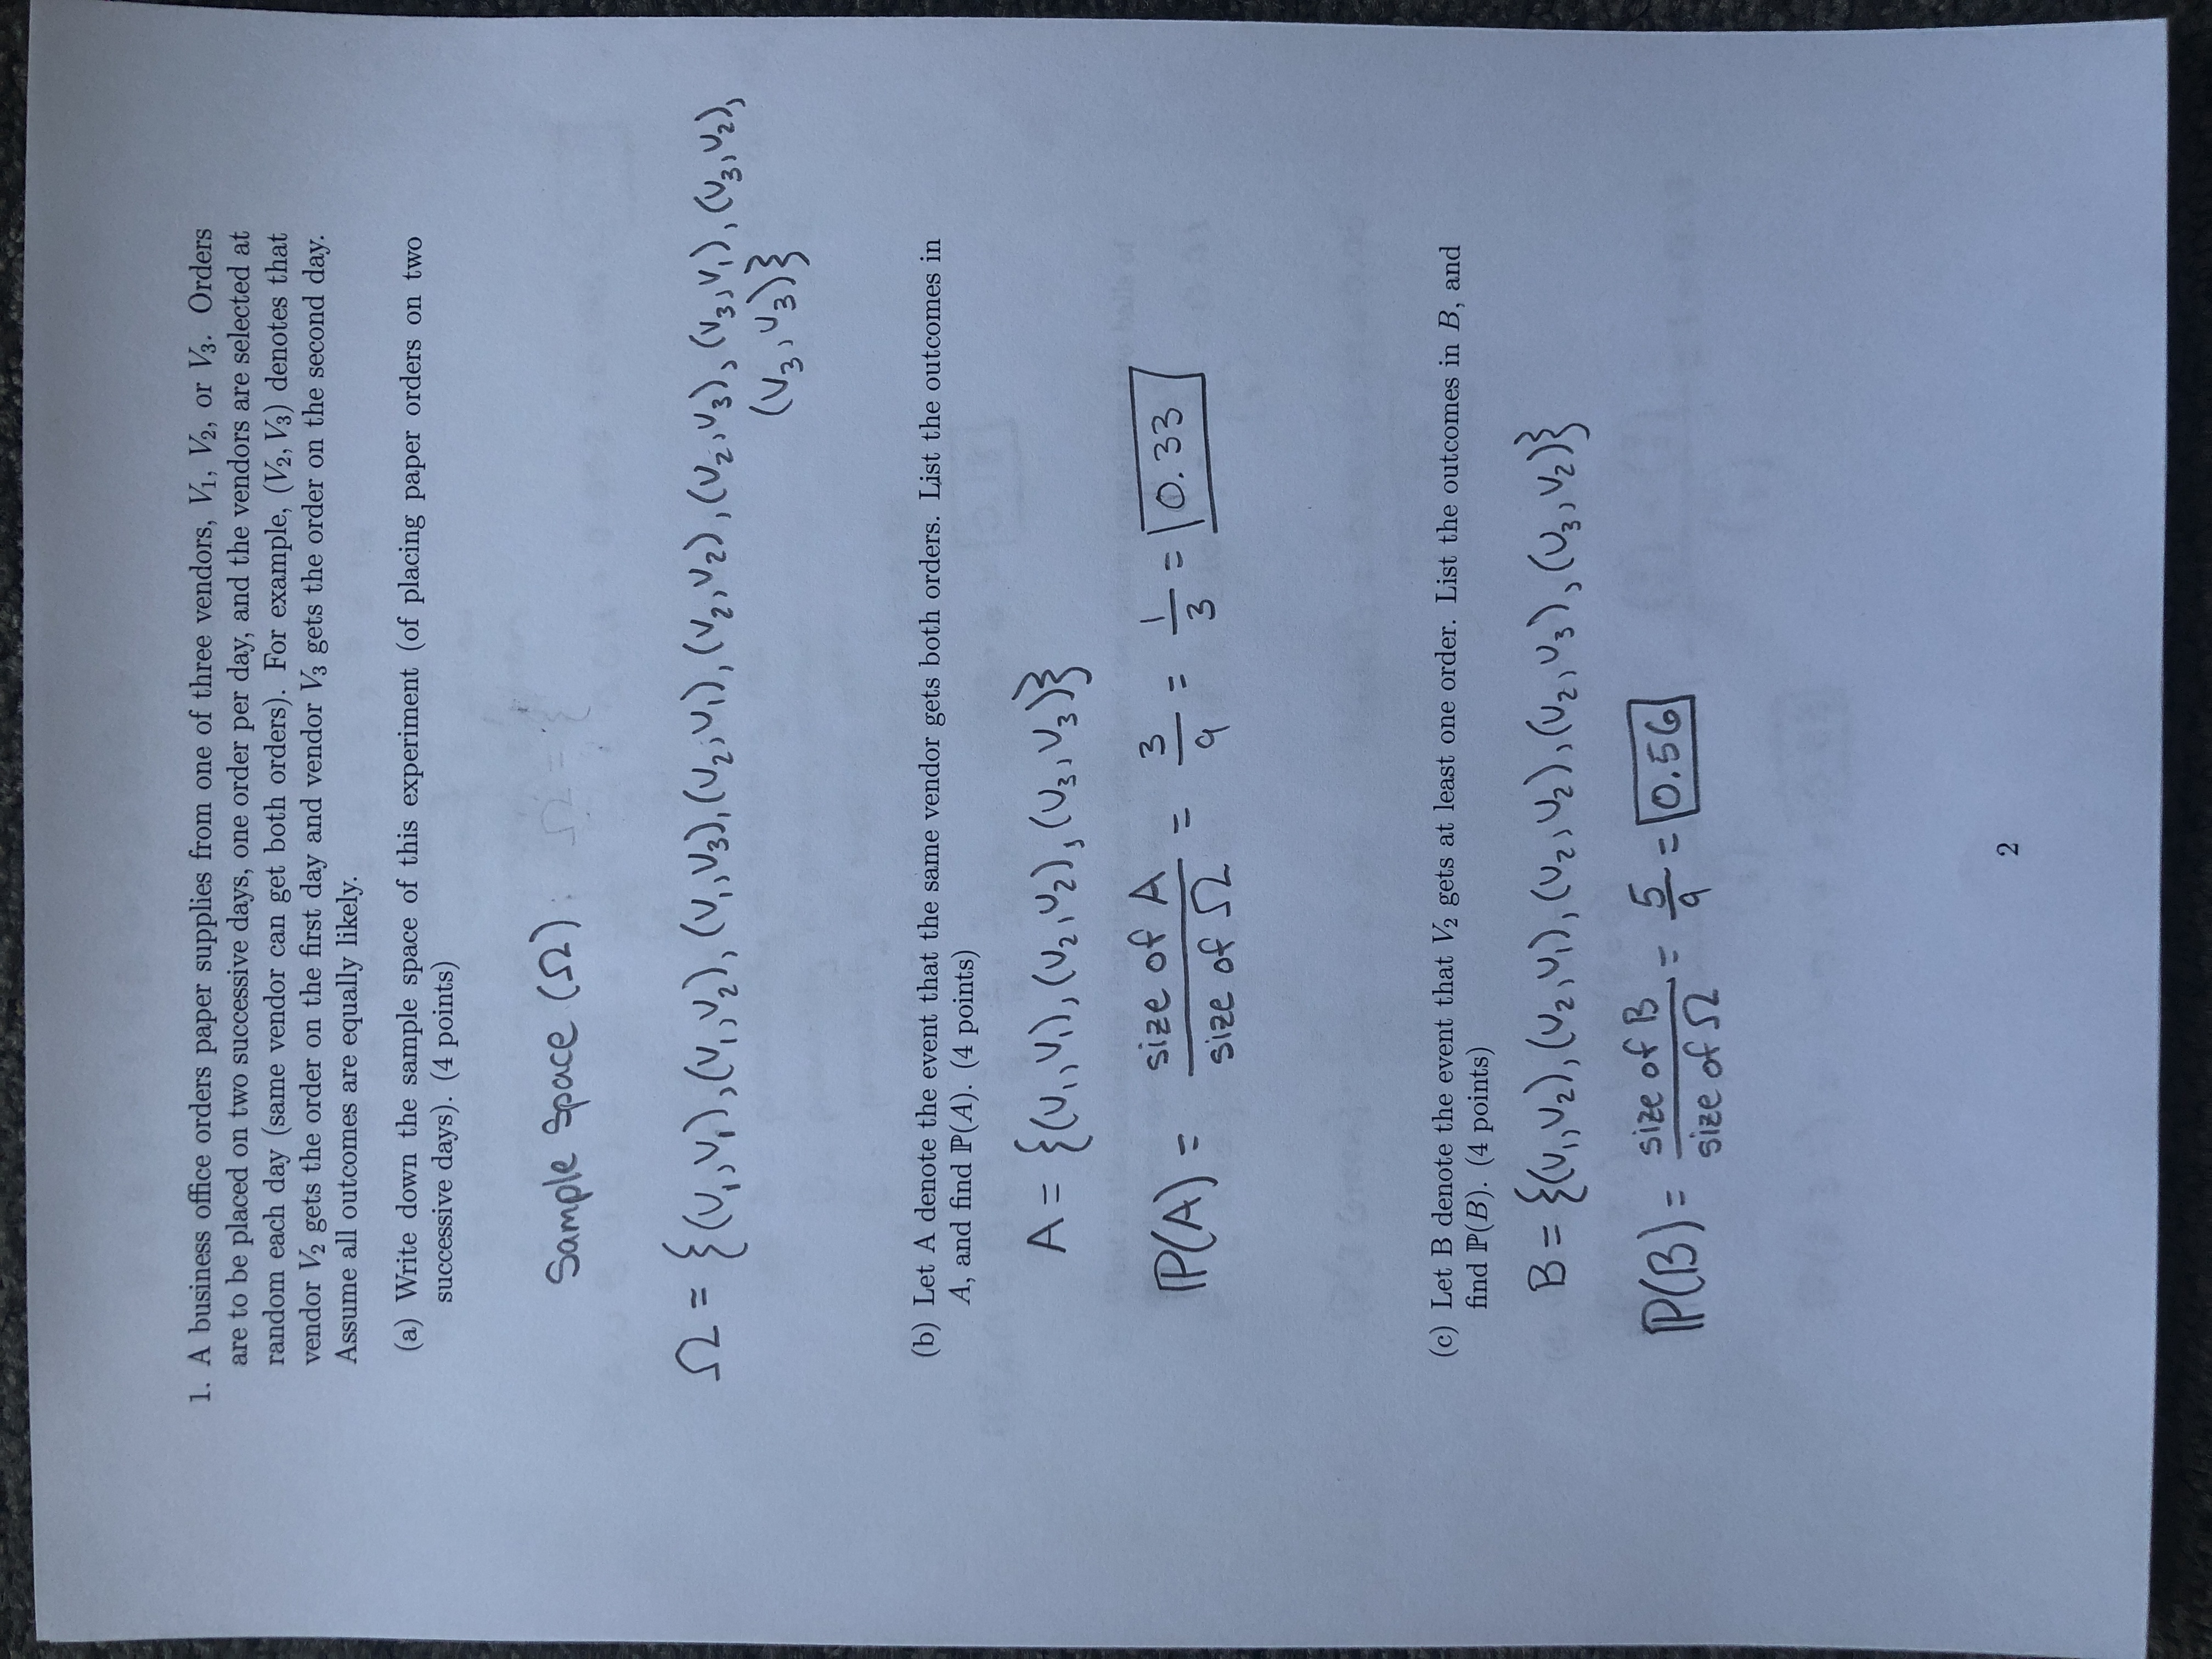 1. A business office orders paper supplies from one of three vendors, V₁, V₂, or V₃. Orders
are to be placed on two successive days, one order per day, and the vendors are selected at
random each day (same vendor can get both orders). For example, (V₂, V₃) denotes that
vendor V₂ gets the order on the first day and vendor V₃ gets the order on the second day.
Assume all outcomes are equally likely.
(a) Write down the sample space of this experiment (of placing paper orders on two
successive days). (4 points)
Sample Space (Ω): Ω = {
Ω = {(V₁,V₁),(V₁,V₂),(V₁,V₃),(V₂,V₁),(V₂,V₂),(V₂,V₃),(V₃,V₁),(V₃,V₂),
(V₃,V₃)}
(b) Let A denote the event that the same vendor gets both orders. List the outcomes in
A, and find ℙ(A). (4 points)
A = {(V₁,V₁),(V₂,V₂),(V₃,V₃)}
ℙ(A) = size of A / size of Ω = 3/9 = 1/3 = 0.33
(c) Let B denote the event that V₂ gets at least one order. List the outcomes in B, and
find ℙ(B). (4 points)
B = {(V₁,V₂),(V₂,V₁),(V₂,V₂),(V₂,V₃),(V₃,V₂)}
ℙ(B) = size of B / size of Ω = 5/9 = 0.56
2